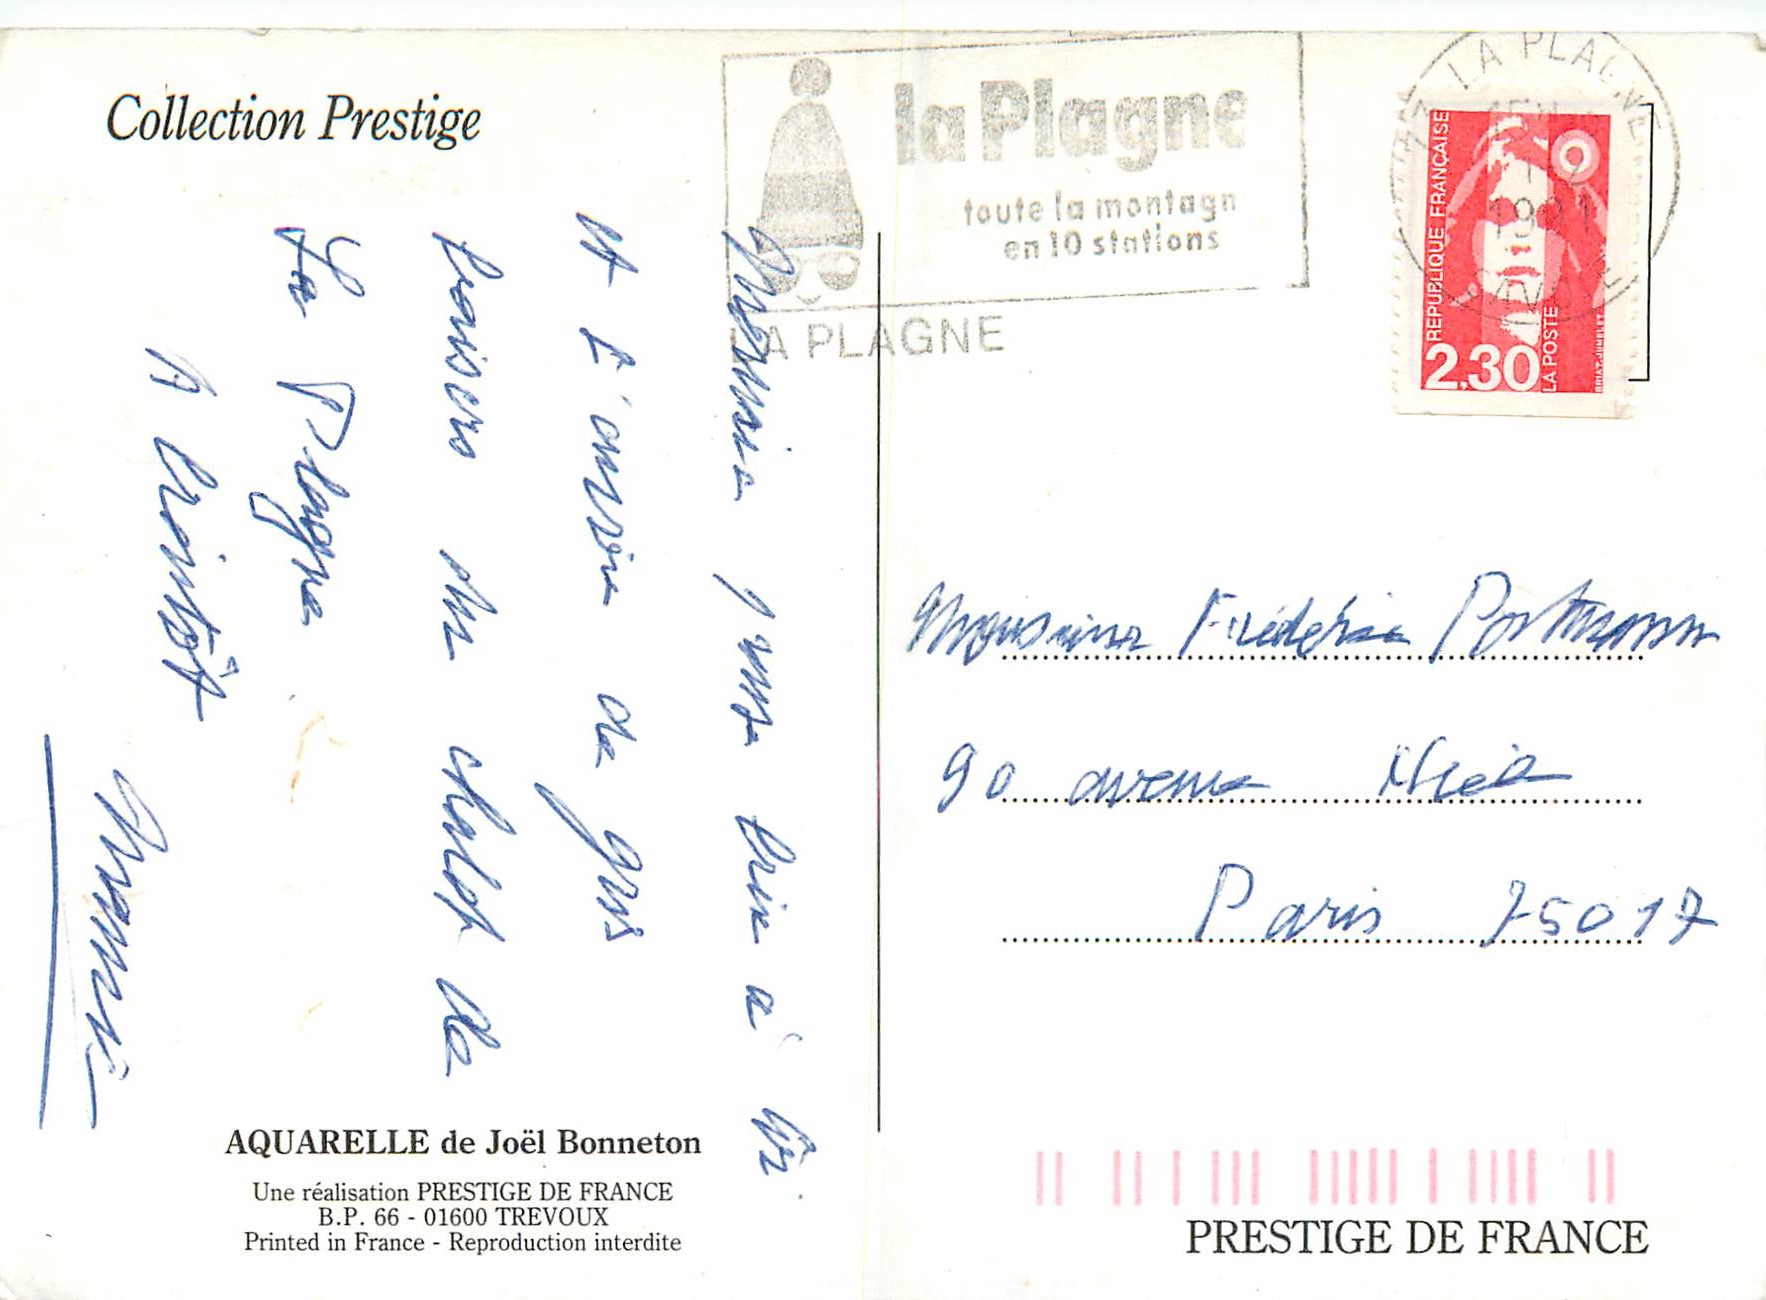 Collection Prestige
la Plagne
toute la montagn
en 10 stations
LA PLAGNE
LA PLAGNE
1991
SAVOIE
REPUBLIQUE FRANÇAISE
2,30
LA POSTE
BRIAT-JUMELET
Mamie pense bien à toi
et t'envoie de gros
baisers du chalet de
La Plagne
A bientôt
Mamie
Monsieur Frédéric Portmann
90 avenue Niel
Paris 75017
AQUARELLE de Joël Bonneton
Une réalisation PRESTIGE DE FRANCE
B.P. 66 - 01600 TREVOUX
Printed in France - Reproduction interdite
PRESTIGE DE FRANCE